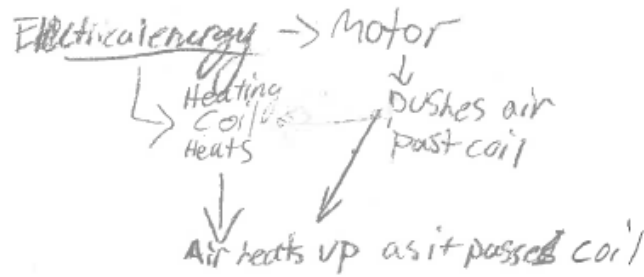 Electrical energy -> Motor
Heating
Coil
Heats
Pushes air
past coil
Air heats up as it passes coil